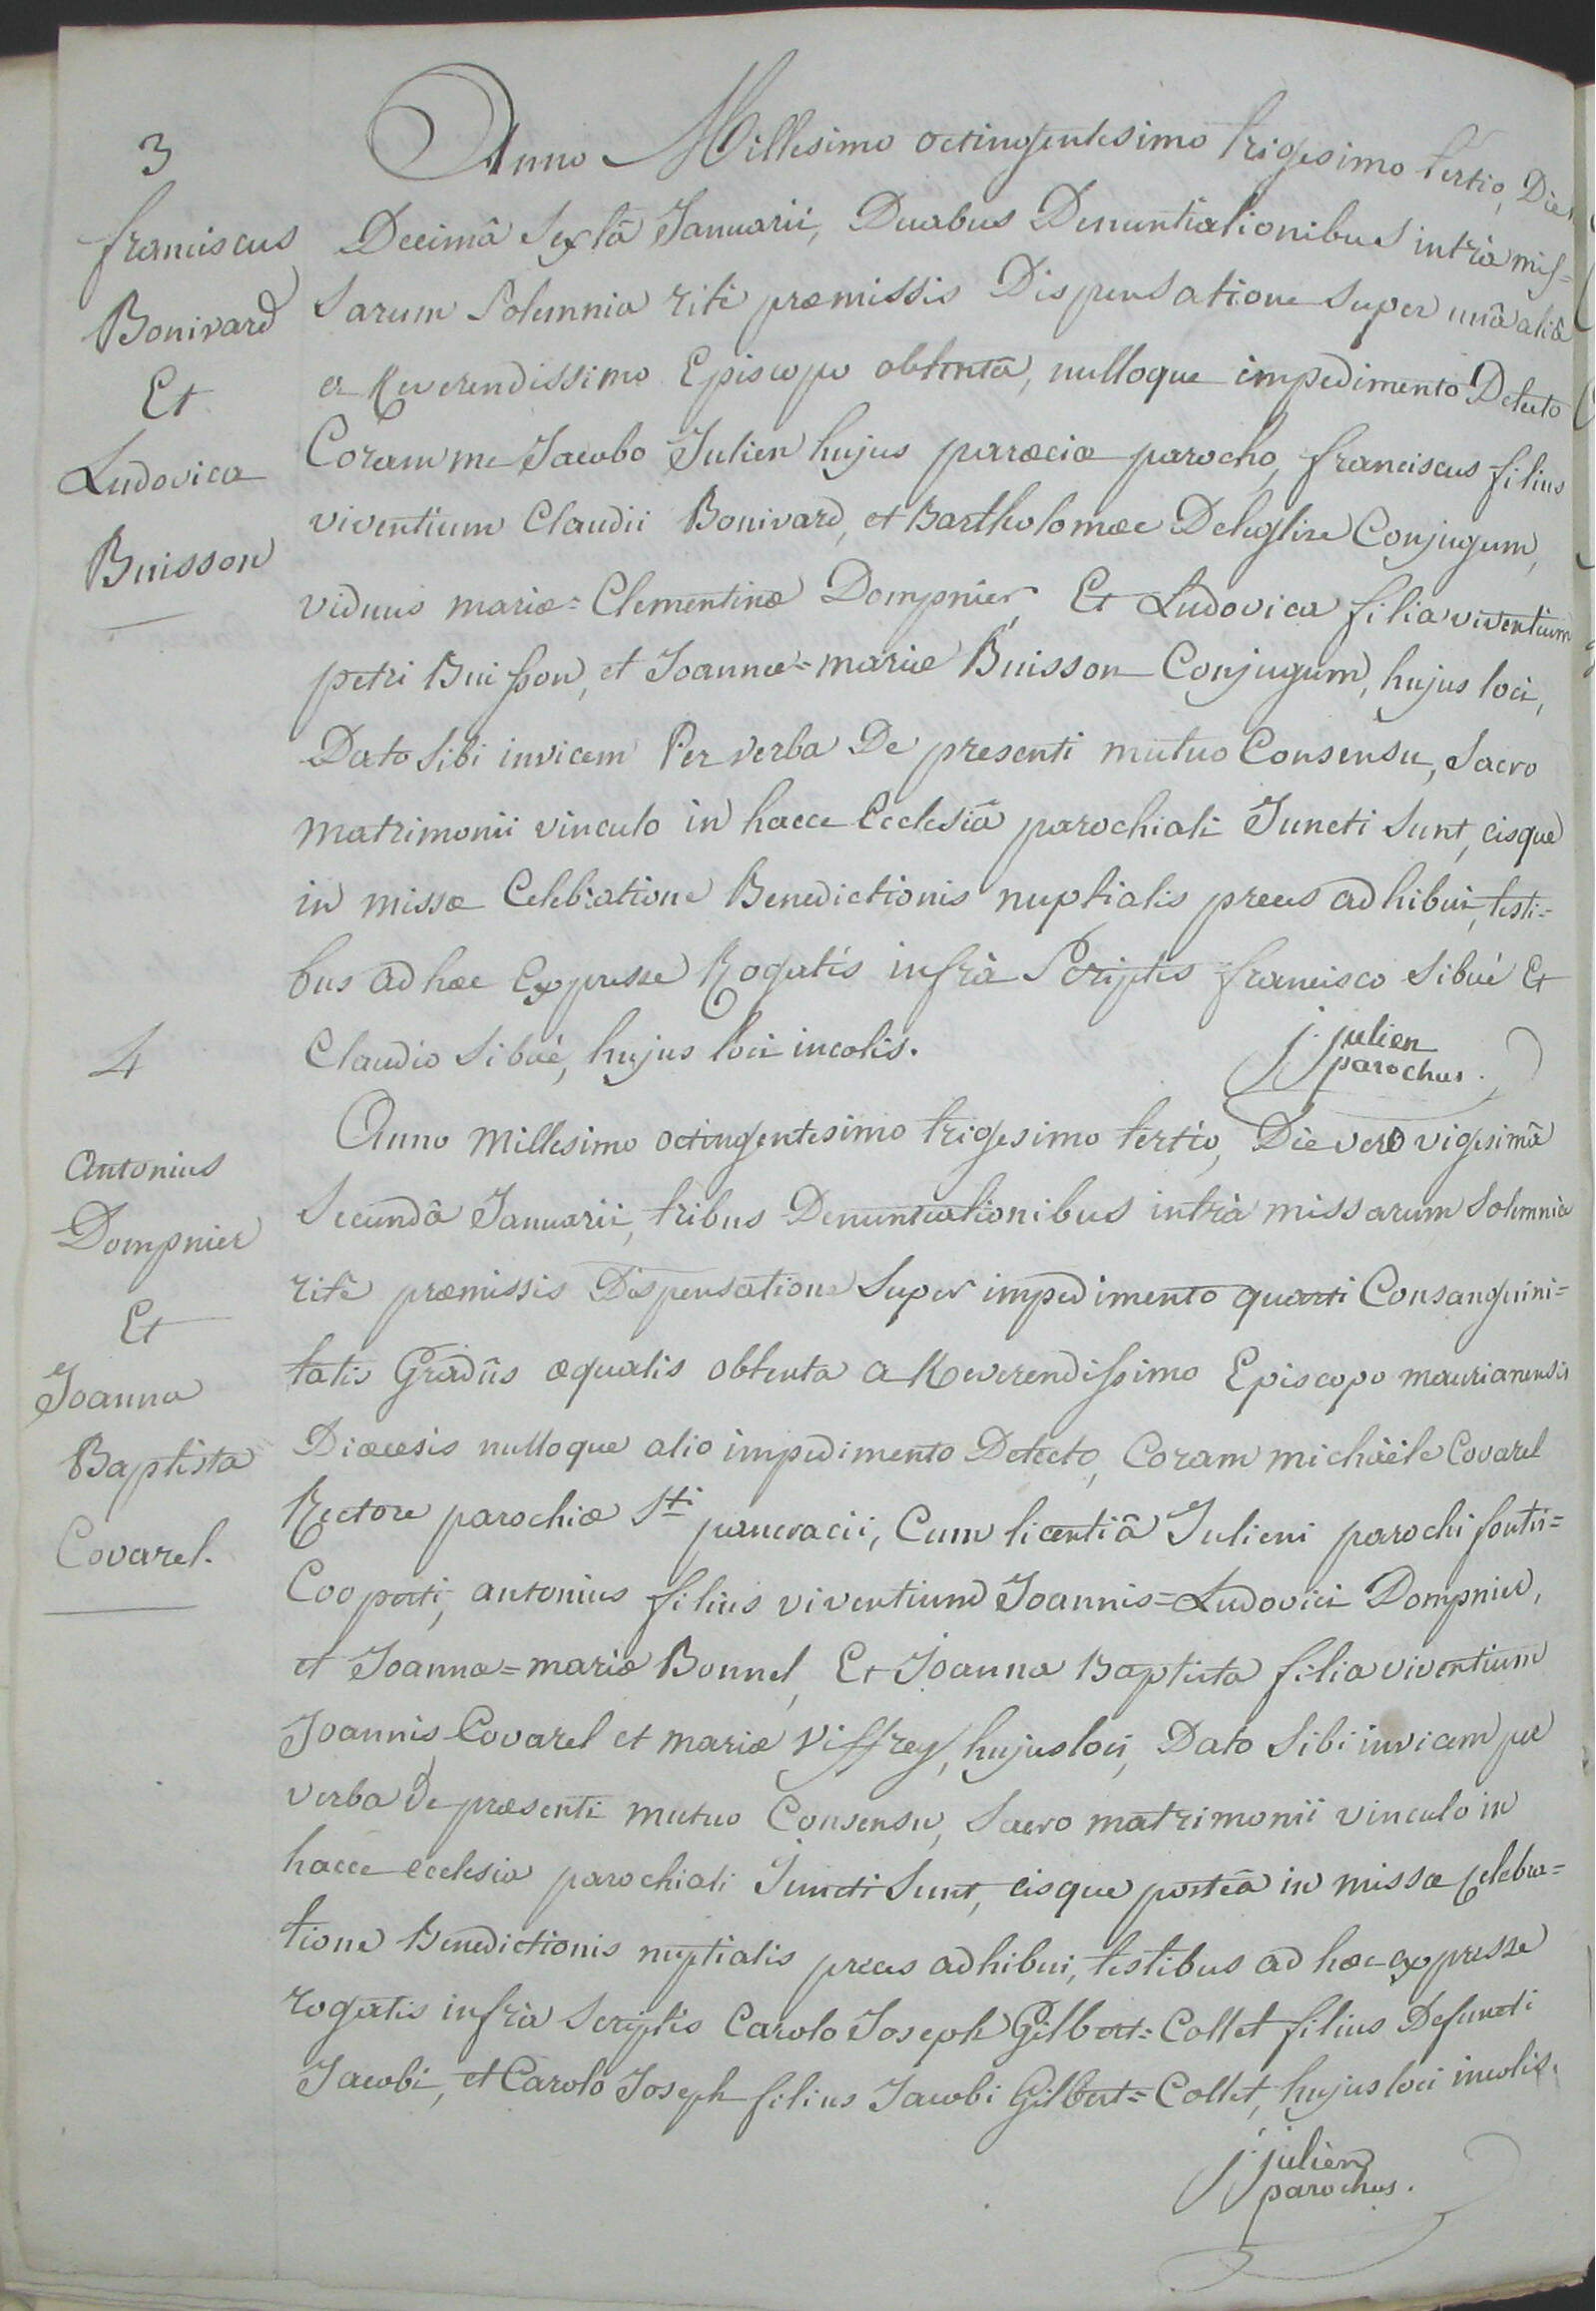 3
franciscus
Bonivard
Et
Ludovica
Buisson
Anno Millesimo octingentesimo trigesimo tertio, Die
Decimâ Sextâ Januarii, Duabus Denuntiationibus intrà mis=
sarum Solemnia ritè præmissis Dispensatione super unâ aliâ
a Reverendissimo Episcopo obtentâ, nulloque impedimento Detecto
Coram me Jacobo Julien hujus paræciæ parocho, franciscus filius
viventium Claudii Bonivard, et Bartholomææ Deléglise Conjugum,
viduus mariæ=Clementinæ Dompnier, Et Ludovica filia viventium
petri Buisson, et Joannæ=mariæ Buisson Conjugum, hujus loci,
Dato sibi invicem Per verba De presenti mutuo Consensu, Sacro
matrimonii vinculo in hacce Ecclesiâ parochiali Juncti Sunt, eisque
in missæ Celebratione Benedictionis nuptialis preces adhibui, testi=
bus ad hoc Expresse Rogatis infrà Scriptis francisco Sibué Et
Claudio Sibué, hujus loci incolis.
j. julien
parochus.
4
Antonius
Dompnier
Et
Joanna
Baptista
Covarel.
Anno Millesimo octingentesimo trigesimo tertio, Die vero vigesimâ
Secundâ Januarii, tribus Denuntiationibus intrà missarum Solemnia
ritè præmissis Dispensatione Super impedimento quarti Consanguini=
tatis Gradûs æqualis obtenta a Reverendissimo Episcopo maurianensis
Diœcesis nulloque alio impedimento Detecto, Coram michäele Covarel
Rectore parochiæ Sti pancracii, Cum licentiâ Julieni parochi fontis=
Cooperti, antonius filius viventium Joannis=Ludovici Dompnier,
et Joannæ=mariæ Bonnel, Et Joanna Baptista filia viventium
Joannis Covarel et mariæ Viffrey, hujus loci, Dato Sibi invicem per
verba De præsenti mutuo Consensu, Sacro matrimonii vinculo in
hacce ecclesia parochiali Juncti Sunt, eisque posteà in missæ Celebra=
tione Benedictionis nuptialis preces adhibui, testibus ad hoc expresse
rogatis infrà Scriptis Carolo Joseph Gilbert=Collet filius Defuncti
Jacobi, et Carolo Joseph filius Jacobi Gilbert=Collet, hujus loci incolis.
j. julien
parochus.